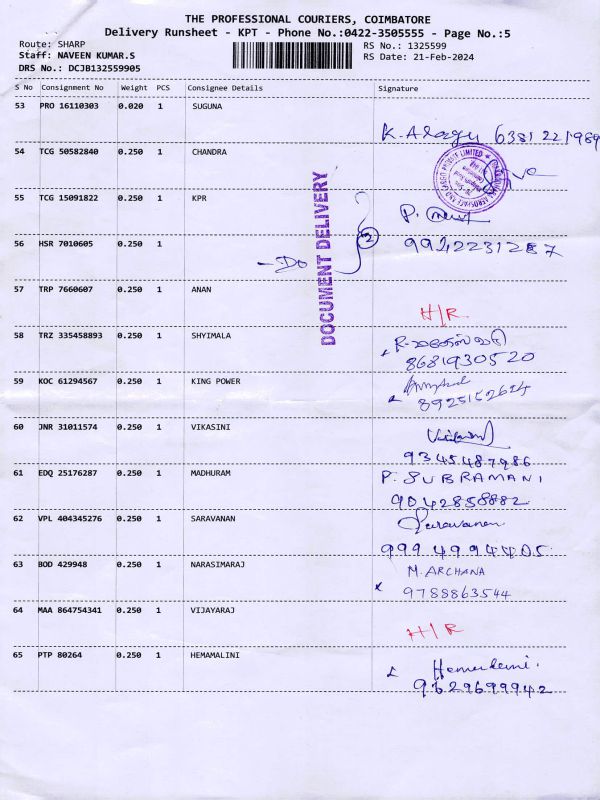 THE PROFESSIONAL COURIERS, COIMBATORE
Delivery Runsheet - KPT - Phone No.:0422-3505555 - Page No.:5
Route: SHARP RS No.: 1325599
Staff: NAVEEN KUMAR.S RS Date: 21-Feb-2024
DRS No.: DCJB132559905
S No Consignment No Weight PCS Consignee Details Signature
53 PRO 16110303 0.020 1 SUGUNA
K. Alagu 6381221989
54 TCG 50582840 0.250 1 CHANDRA
55 TCG 15091822 0.250 1 KPR
P.
56 HSR 7010605 0.250 1 9942231287
- Do 2
DOCUMENT DELIVERY
57 TRP 7660607 0.250 1 ANAN
H/R
58 TRZ 335458893 0.250 1 SHYIMALA
R. மகேஸ்வரி
8681930520
59 KOC 61294567 0.250 1 KING POWER
8925152624
60 JNR 31011574 0.250 1 VIKASINI
9345487986
61 EDQ 25176287 0.250 1 MADHURAM P. SUBRAMANI
9042858882
62 VPL 404345276 0.250 1 SARAVANAN Saravanan
9994994405
63 BOD 429948 0.250 1 NARASIMARAJ M. ARCHANA
9788863544
64 MAA 864754341 0.250 1 VIJAYARAJ
H/R
65 PTP 80264 0.250 1 HEMAMALINI
9629699942